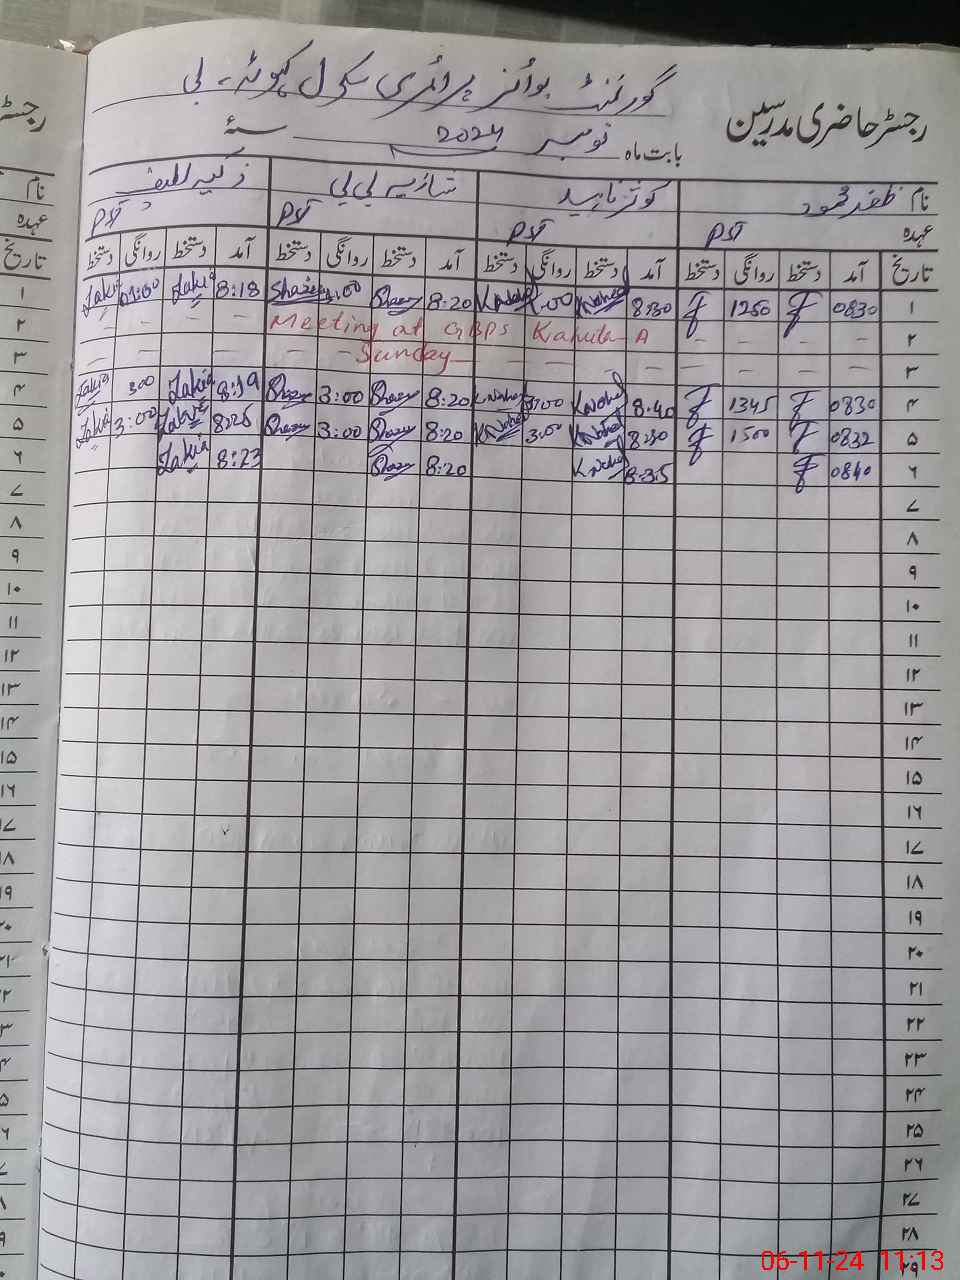 گورنمنٹ بوائز پرائمری سکول کہوٹہ - بی
رجسٹر حاضری مدرسین
بابت ماہ نومبر 2024 سنہ
نام ظفر محمود کوثر ناہید شازیہ بی بی ذکیہ لطیف
عہدہ PST PST PST PST
تاریخ آمد دستخط روانگی دستخط آمد دستخط روانگی دستخط آمد دستخط روانگی دستخط آمد دستخط روانگی دستخط
۱ 0830 1250 8:30 K.Nahed 1:00 K.Nahed 8:20 Shazy 1:00 Shazia 8:18 Zakia 01:00 Zakia
۲ - - - - Meeting at GBPS Kahuta - A - - - -
۳ - - - - Sunday - - - -
۴ 0830 1345 8:40 K.Nahed 3:00 K.Nahed 8:20 Shazy 3:00 Shazy 8:19 Zakia 3:00 Zakia
۵ 0832 1500 8:30 K.Nahed 3:00 K.Nahed 8:20 Shazy 3:00 Shazy 8:25 Zakia 3:00 Zakia
۶ 0840 8:35 K.Nahed 8:20 Shazy 8:23 Zakia
۷
۸
۹
۱۰
۱۱
۱۲
۱۳
۱۴
۱۵
۱۶
۱۷
۱۸
۱۹
۲۰
۲۱
۲۲
۲۳
۲۴
۲۵
۲۶
۲۷
۲۸
۲۹
06-11-24 11:13